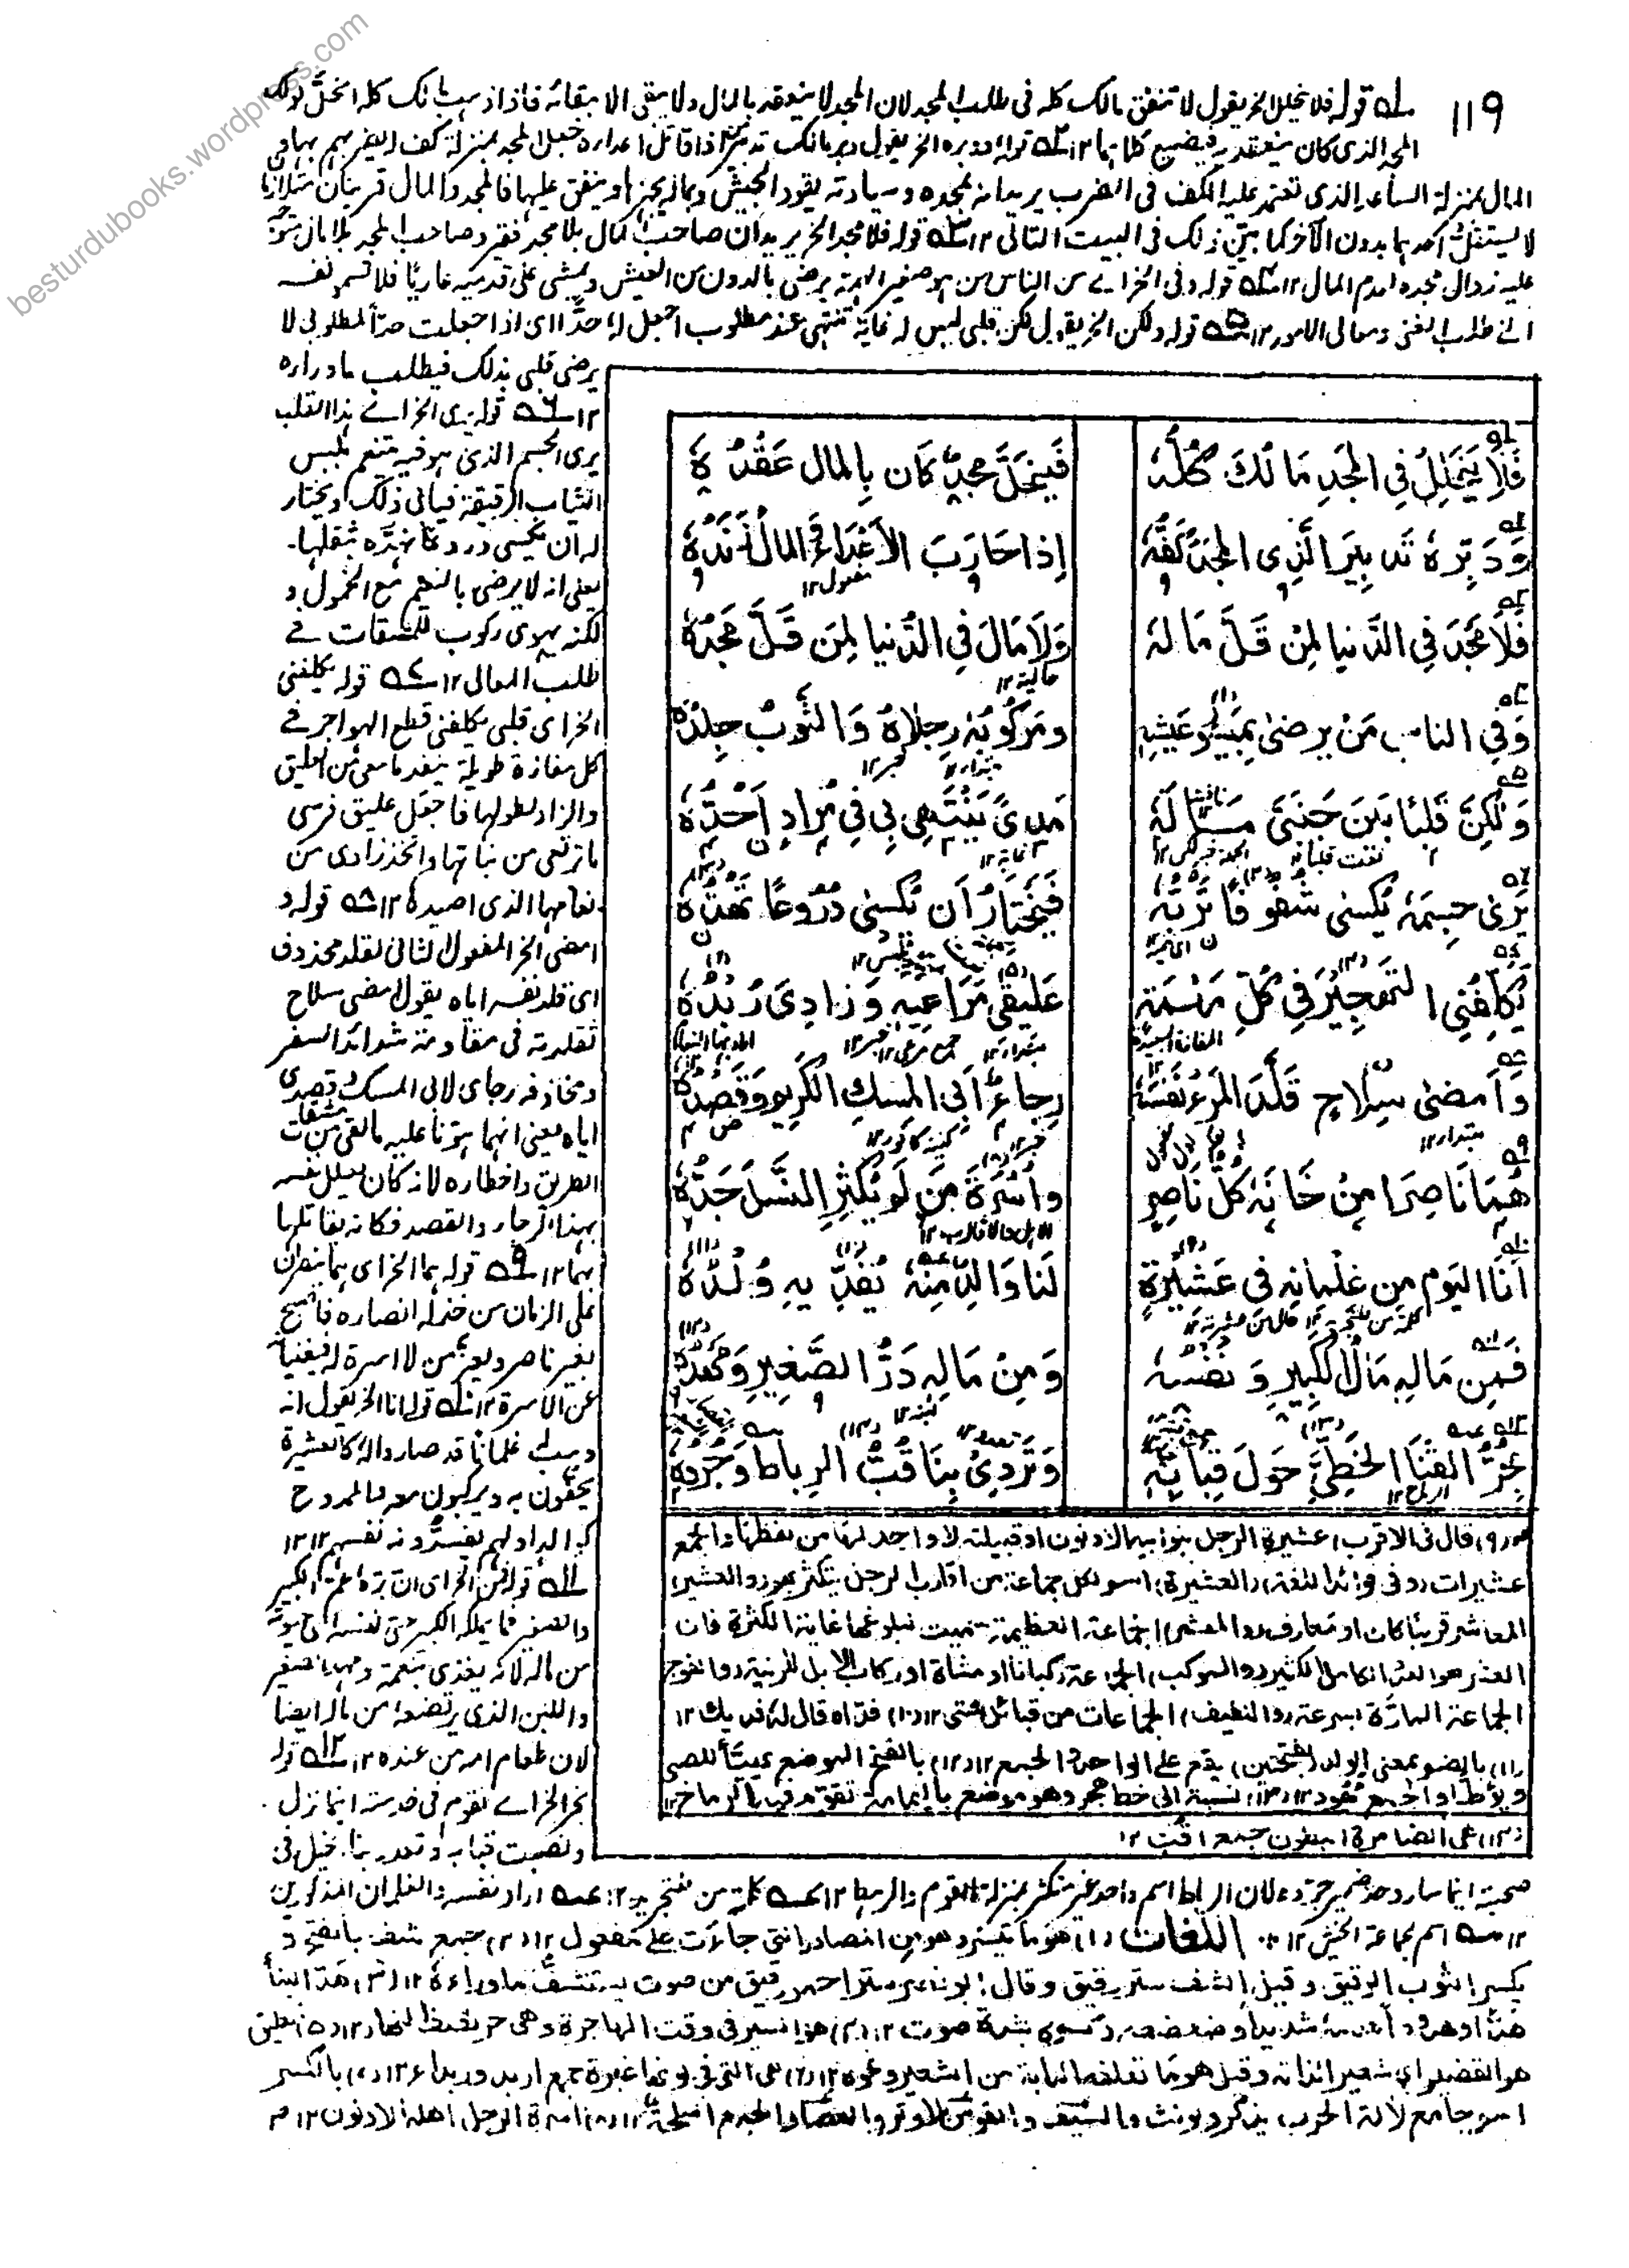 besturdubooks.wordpress.com
۱۱۹
۱ قوله فلا ينحلل الخ يقول لا تنفق مالك كله فى طلب المجد لان المجد لا ينعقد بالمال ولا يبقى الا ببقائه فاذا ذهب مالك كله انحل ذلك
المجد الذى كان ينعقد به فيضيع كلاهما ۱۲ ۲ قوله ودبره الخ يقول دبر مالك تدبير من اذا قاتل اعداءه جعل المجد بمنزلة كف يضربهم بها و
المال بمنزلة الساعد الذى تعتمد عليه الكف فى الضرب يريد انه بمجده وسيادته يقود الجيش وبماله يجهز او ينفق عليها فالمجد والمال قرينان متلازما
لا يستقل احدهما بدون الآخر كما بين ذلك فى البيت التالى ۱۲ ۳ قوله فلا مجد الخ يريد ان صاحب المال بلا مجد فقير وصاحب المجد بلا مال
عليه زوال مجده لعدم المال ۱۲ ۴ قوله وفى الخ اى من الناس من هو صغير الهمة يرضى بالدون من العيش ويمشى على قدميه عاريا فلا نفسه
الى طلب الغنى ومعالى الامور ۱۲ ۵ قوله ولكن الخ يقول لكن قلبى ليس له غاية تنتهى عند مطلوب اجعل له حدا اى اذا جعلت حدا لمطلوبى لا
يرضى قلبى بذلك فيطلب ما وراءه
۱۲ ۶ قوله يرى الخ اى هذا القلب
يرى الجسم الذى هو فيه متنعم بلبس
الثياب الرقيقة فيأبى ذلك ويختار
له ان يكسى دروعا تهده بثقلها۔
يعنى انه لا يرضى بالنعيم مع الخمول و
لكنه يهوى ركوب المشقات فى
طلب المعالى ۱۲ ۷ قوله يكلفنى
الخ اى قلبى يكلفنى قطع الهواجر فى
كل مفازة طويلة ينفد ما معى من العليق
والزاد لطولها فاجعل عليق فرسى
ما ترعى من نباتها واتخذ زادى من
نعامها الذى اصيده ۱۲ ۸ قوله و
امضى الخ المفعول الثانى لقلد محذوف
اى قلد نفسه اياه يقول امضى سلاح
تقلدته فى مقاومة شدائد السفر
ومخاوفه رجاى لابى المسك وقصدى
اياه يعنى انهما هونا عليه ما لقى من مشقات
الطريق واخطاره لانه كان يعلل نفسه
بهذا الرجاء والقصد فكانه يقاتلها
بهما ۱۲ ۹ قوله هما الخ اى هما ينصران
على الزمان من خذله انصاره فاصبح
بغير ناصر من لا اسرة له فيغنيانه
عن الاسرة ۱۲ ۱۰ قوله انا الخ يقول انه
وهب لى غلمانا قد صاروا له كالعشيرة
يحفون به ويركبون معه فالممدوح
كالوالد لهم يفدونه نفسهم ۱۲
۱۱ قوله فمن الخ اى الكبير
والصغير فما يملكه الكبير حتى نفسه
من ماله لانه يغذى بنعمة ومهد الصغير
واللبن الذى يرتضعه من ماله ايضا
لان طعام امه من عنده ۱۲ ۱۲ قوله
نجر الخ اى نقوم فى خدمته اينما نزل
ونصبت قبابه وتعدو بنا خيل فى
فَلَا يَنْحَلِلْ فِي الْمَجْدِ مَالُكَ كُلُّهُ فَيَنْحَلَّ مَجْدٌ كَانَ بِالْمَالِ عَقْدُهُ
وَدَبِّرْهُ تَدْبِيرَ الَّذِي الْمَجْدُ كَفُّهُ إِذَا حَارَبَ الْأَعْدَاءَ وَالْمَالُ زَنْدُهُ
فَلَا مَجْدَ فِي الدُّنْيَا لِمَنْ قَلَّ مَالُهُ وَلَا مَالَ فِي الدُّنْيَا لِمَنْ قَلَّ مَجْدُهُ
وَفِي النَّاسِ مَنْ يَرْضَى بِمَيْسُورِ عَيْشِهِ وَمَرْكُوبُهُ رِجْلَاهُ وَالثَّوْبُ جِلْدُهُ
وَلَكِنَّ قَلْبًا بَيْنَ جَنْبَيَّ مَا لَهُ مَدًى يَنْتَهِي بِي فِي مُرَادٍ أَحُدُّهُ
يَرَى جِسْمَهُ يُكْسَى شُفُوفًا تَرُبُّهُ فَيَخْتَارُ أَنْ يُكْسَى دُرُوعًا تَهُدُّهُ
يُكَلِّفُنِي التَّهْجِيرَ فِي كُلِّ مَهْمَهٍ عَلِيقِي مَرَاعِيهِ وَزَادِيَ رُبْدُهُ
وَأَمْضَى سِلَاحٍ قَلَّدَ الْمَرْءُ نَفْسَهُ رَجَاءُ أَبِي الْمِسْكِ الْكَرِيمِ وَقَصْدُهُ
هُمَا نَاصِرَا مَنْ خَانَهُ كُلُّ نَاصِرٍ وَأُسْرَةُ مَنْ لَمْ يُكْثِرِ النَّسْلَ جَدُّهُ
أَنَا الْيَوْمَ مِنْ غِلْمَانِهِ فِي عَشِيرَةٍ لَنَا وَالِدٌ مِنْهُ يُفَدِّيهِ وُلْدُهُ
فَمِنْ مَالِهِ مَالُ الْكَبِيرِ وَنَفْسُهُ وَمِنْ مَالِهِ دَرُّ الصَّغِيرِ وَمَهْدُهُ
نَجُرُّ الْقَنَا الْخَطِّيَّ حَوْلَ قِبَابِهِ وَتَرْدِي بِنَا قُبُّ الرِّبَاطِ وَجُرْدُهُ
(۹) قال فى الاقرب عشيرة الرجل بنو ابيه الادنون او قبيلته لا واحد لها من لفظها والجمع
عشيرات وفى فرائد اللغة (العشيرة) اسم لكل جماعة من اقارب الرجل يتكثر بهم و(العشير)
المعاشر قريبا كان او معارف و(المعشر) الجماعة العظيمة سميت لبلوغها غاية الكثرة فان
العشر هو العدد الكامل الكثير و(الموكب) الجماعة ركبانا او مشاة او ركاب الابل للزينة و(الفوج)
الجماعة المارة بسرعة و(اللفيف) الجماعات من قبائل شتى ۱۲ (۱۰) فداه قال له فديك ۱۲
(۱۱) بالضم بمعنى الولد (بفتحتين) يقع على الواحد والجمع ۱۲ (۱۲) بالفتح الموضع يهيأ للصبى
ويوطأ والجمع مهود ۱۲ (۱۳) نسبة الى خط هجر وهو موضع باليمامة تقوم فيه الرماح ۱۲
(۱۴) هى الضامرة البطون جمع اقب ۱۲
صحبته اينما سار وحد ضمير جرده لان الرباط اسم واحد غير متكثر بمنزلة القوم والرهط ۱۲ كلمة من تجريد ۱۲ اراد نفسه والغلمان المذكورين
۱۲ اسم لجماعة الخيل ۱۲ اللغات (۱) هو ما تيسر وهو من المصادر التى جاءت على مفعول ۱۲ (۲) جمع شف بالفتح و
يكسر الثوب الرقيق وقيل الشف ستر رقيق وقال ابو نصر ستر احمر رقيق من صوف يستشف ما وراءه ۱۲ (۳) هد البناء
هدا وهدودا هدمه شديدا وضعضعه وكسره بشدة صوت ۱۲ (۴) هو السير فى وقت الهاجرة وهى حر نصف النهار ۱۲ (۵) العليق
هو القضيم اى شعير الدابة وقيل هو ما تعلفه الدابة من الشعير ونحوه ۱۲ (۶) هى التى فى لونها غبرة جمع اربد وربداء ۱۲ (۷) بالكسر
اسم جامع لآلة الحرب يذكر ويونث والسيف والقوس بلا وتر والعصا والجمع اسلحة ۱۲ (۸) اسرة الرجل اهله الادنون ۱۲